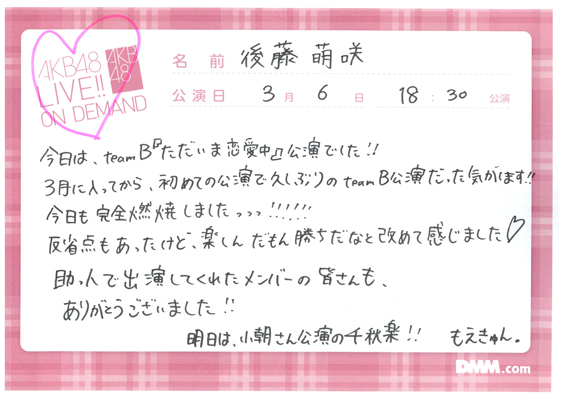 AKB48
LIVE!!
ON DEMAND
AKB
48
名 前 後藤 萌咲
公演日 3 月 6 日 18 : 30 公演
今日は、teamB『ただいま恋愛中』公演でした!!
3月に入ってから、初めての公演で久しぶりのteamB公演だった気がします!!
今日も完全燃焼しましたっっっ!!!!!!
反省点もあったけど、楽しんだもん勝ちだなと改めて感じました♡
助っ人で出演してくれたメンバーの皆さんも、
ありがとうございました!!
明日は、小朝さん公演の千秋楽!! もえきゅん。
DMM.com